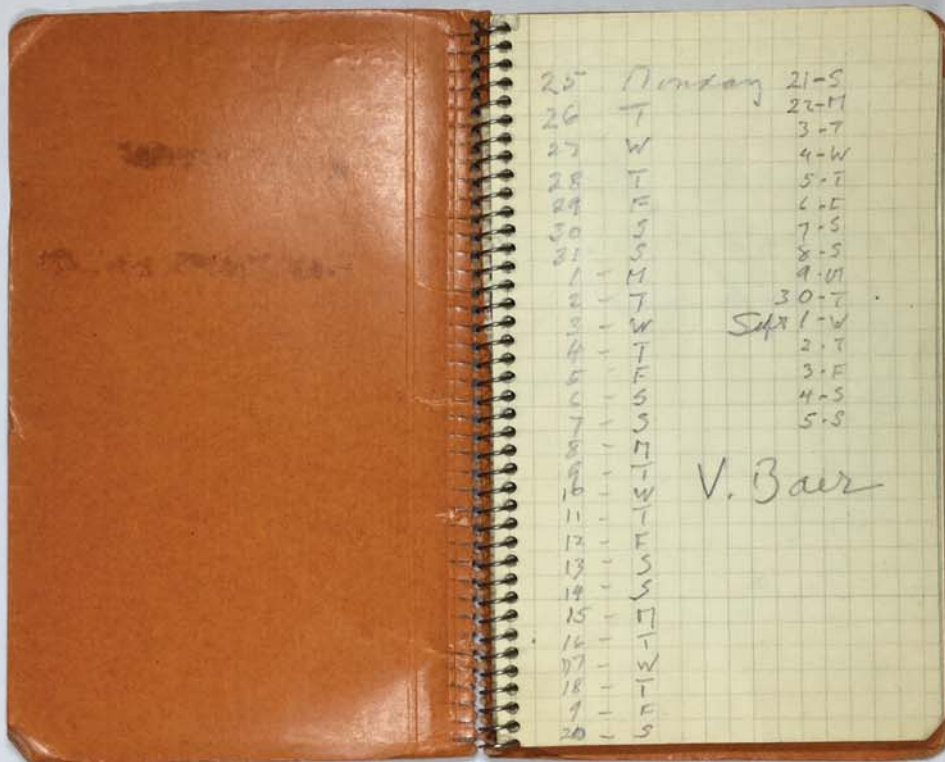 25 Monday
26 T
27 W
28 T
29 F
30 S
31 S
1 - M
2 - T
3 - W
4 - T
5 - F
6 - S
7 - S
8 - M
9 - T
10 - W
11 - T
12 - F
13 - S
14 - S
15 - M
16 - T
17 - W
18 - T
9 - F
20 - S
21-S
22-M
3-T
4-W
5-T
6-F
7-S
8-S
9-M
30-T
Sept 1-W
2-T
3-F
4-S
5-S
V. Baer